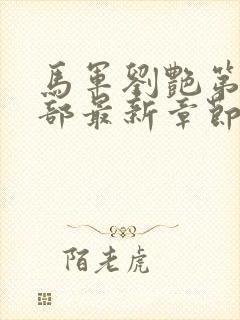 馬軍劉艷第
部最新章節
陌老虎